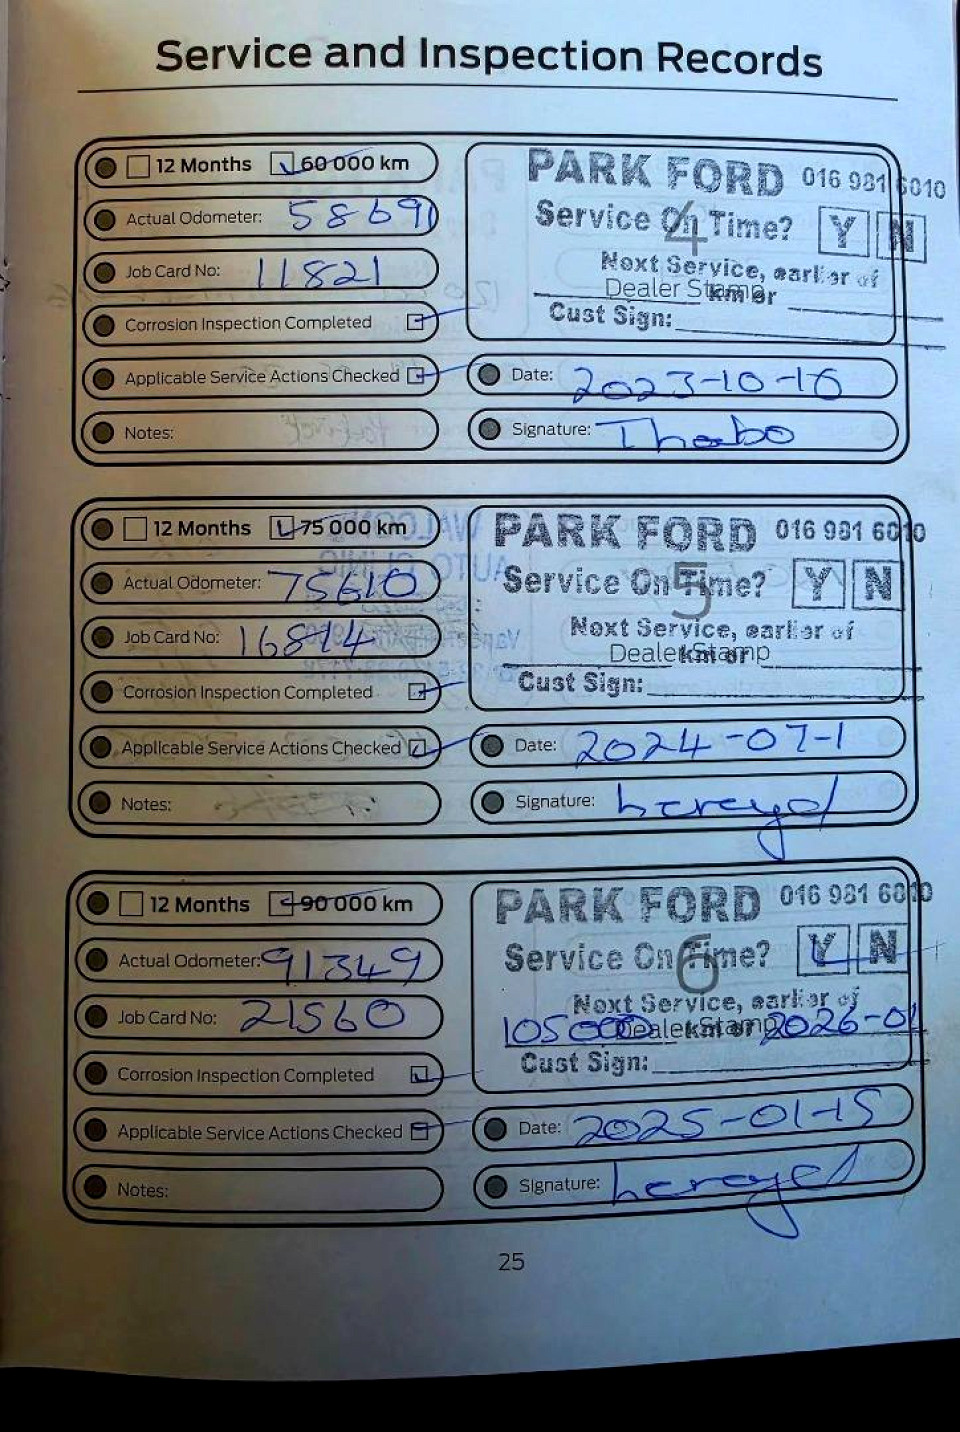 Service and Inspection Records
12 Months 60 000 km
PARK FORD 016 981 6010
Actual Odometer: 58691
Service On Time? Y N
4
Job Card No: 11821
Next Service, earlier of
Dealer Stamp
km or
Corrosion Inspection Completed
Cust Sign:
Applicable Service Actions Checked
Date: 2023-10-16
Notes:
Signature: Thabo
12 Months 75 000 km
PARK FORD 016 981 6010
Actual Odometer: 75610
Service On Time? Y N
5
Job Card No: 16814
Next Service, earlier of
Dealer Stamp
km or
Corrosion Inspection Completed
Cust Sign:
Applicable Service Actions Checked
Date: 2024-07-1
Notes:
Signature:
12 Months 90 000 km
PARK FORD 016 981 6010
Actual Odometer: 91349
Service On Time? Y N
6
Job Card No: 21560
Next Service, earlier of
105000 km or 2026-01
Dealer Stamp
Corrosion Inspection Completed
Cust Sign:
Applicable Service Actions Checked
Date: 2025-01-15
Notes:
Signature:
25